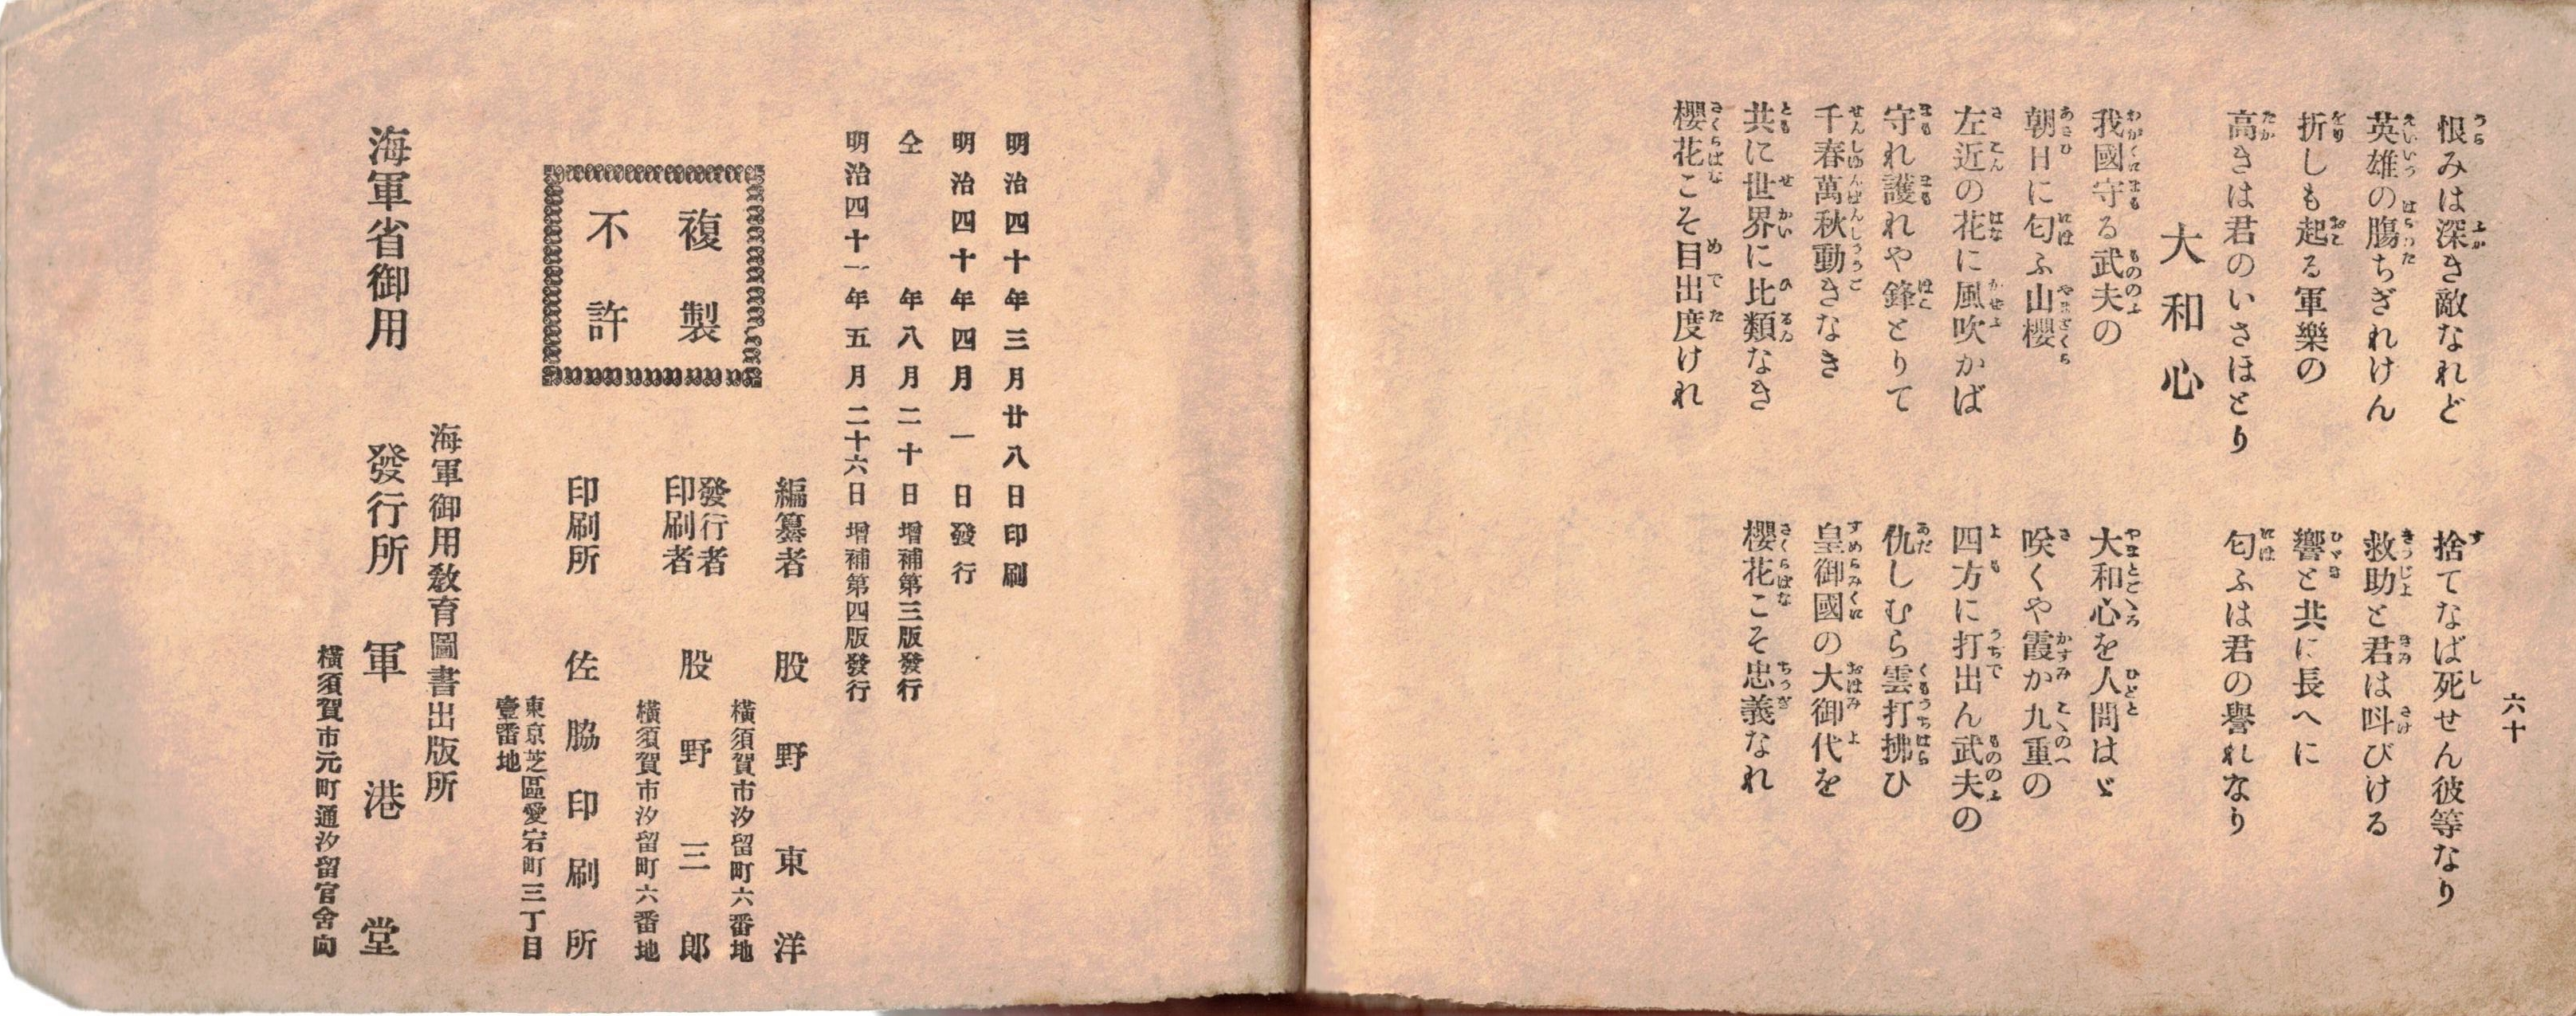 六十
恨みは深き敵なれど
捨てなば死せん彼等なり
英雄の膓ちぎれけん
救助と君は叫びける
折しも起る軍樂の
響と共に長へに
高きは君のいさほとり
匂ふは君の譽れなり
大和心
我國守る武夫の
大和心を人問はゞ
朝日に匂ふ山櫻
咲くや霞か九重の
左近の花に風吹かば
四方に打出ん武夫の
守れ護れや鋒とりて
仇しむら雲打拂ひ
千春萬秋動きなき
皇御國の大御代を
共に世界に比類なき
櫻花こそ忠義なれ
櫻花こそ目出度けれ
明治四十年三月廿八日印刷
明治四十年四月一日發行
仝年八月二十日增補第三版發行
明治四十一年五月二十六日增補第四版發行
複製
不許
編纂者 股野東洋
橫須賀市汐留町六番地
發行者
印刷者 股野三郎
橫須賀市汐留町六番地
印刷所 佐脇印刷所
東京芝區愛宕町三丁目
壹番地
海軍御用敎育圖書出版所
海軍省御用 發行所 軍港堂
橫須賀市元町通汐留官舍向